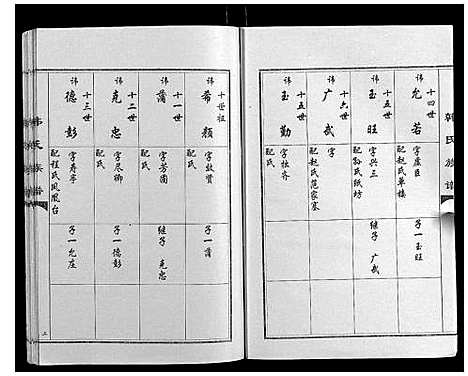 韩氏族谱
十四世
讳
允若
字虞臣
配赵氏草楼
子一玉旺
十五世
讳
玉旺
字兴三
配孙氏纸坊
继子 广武
十六世
讳
广武
字
配赵氏范家寨
十五世
讳
玉勤
配氏
十世祖
讳
希颜
字敏贤
配氏
子一蒲
十一世
讳
蒲
配氏
继子 克忠
十二世
讳
克忠
字尽卿
配氏
子一德彭
十三世
讳
德彭
字寿亭
配程氏凤凰台
子一允庄
韩氏族谱